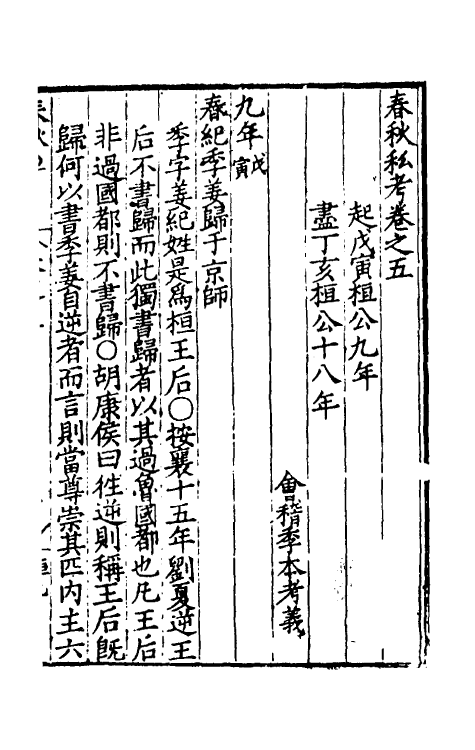 春秋私考卷之五
起戊寅桓公九年
盡丁亥桓公十八年
會稽季本考義
九年戊寅
春紀季姜歸于京師
季字姜紀姓是爲桓王后〇按襄十五年劉夏逆王
后不書歸而此獨書歸者以其過魯國都也凡王后
非過國都則不書歸〇胡康侯曰往逆則稱王后旣
歸何以書季姜自逆者而言則當尊崇其匹內主六